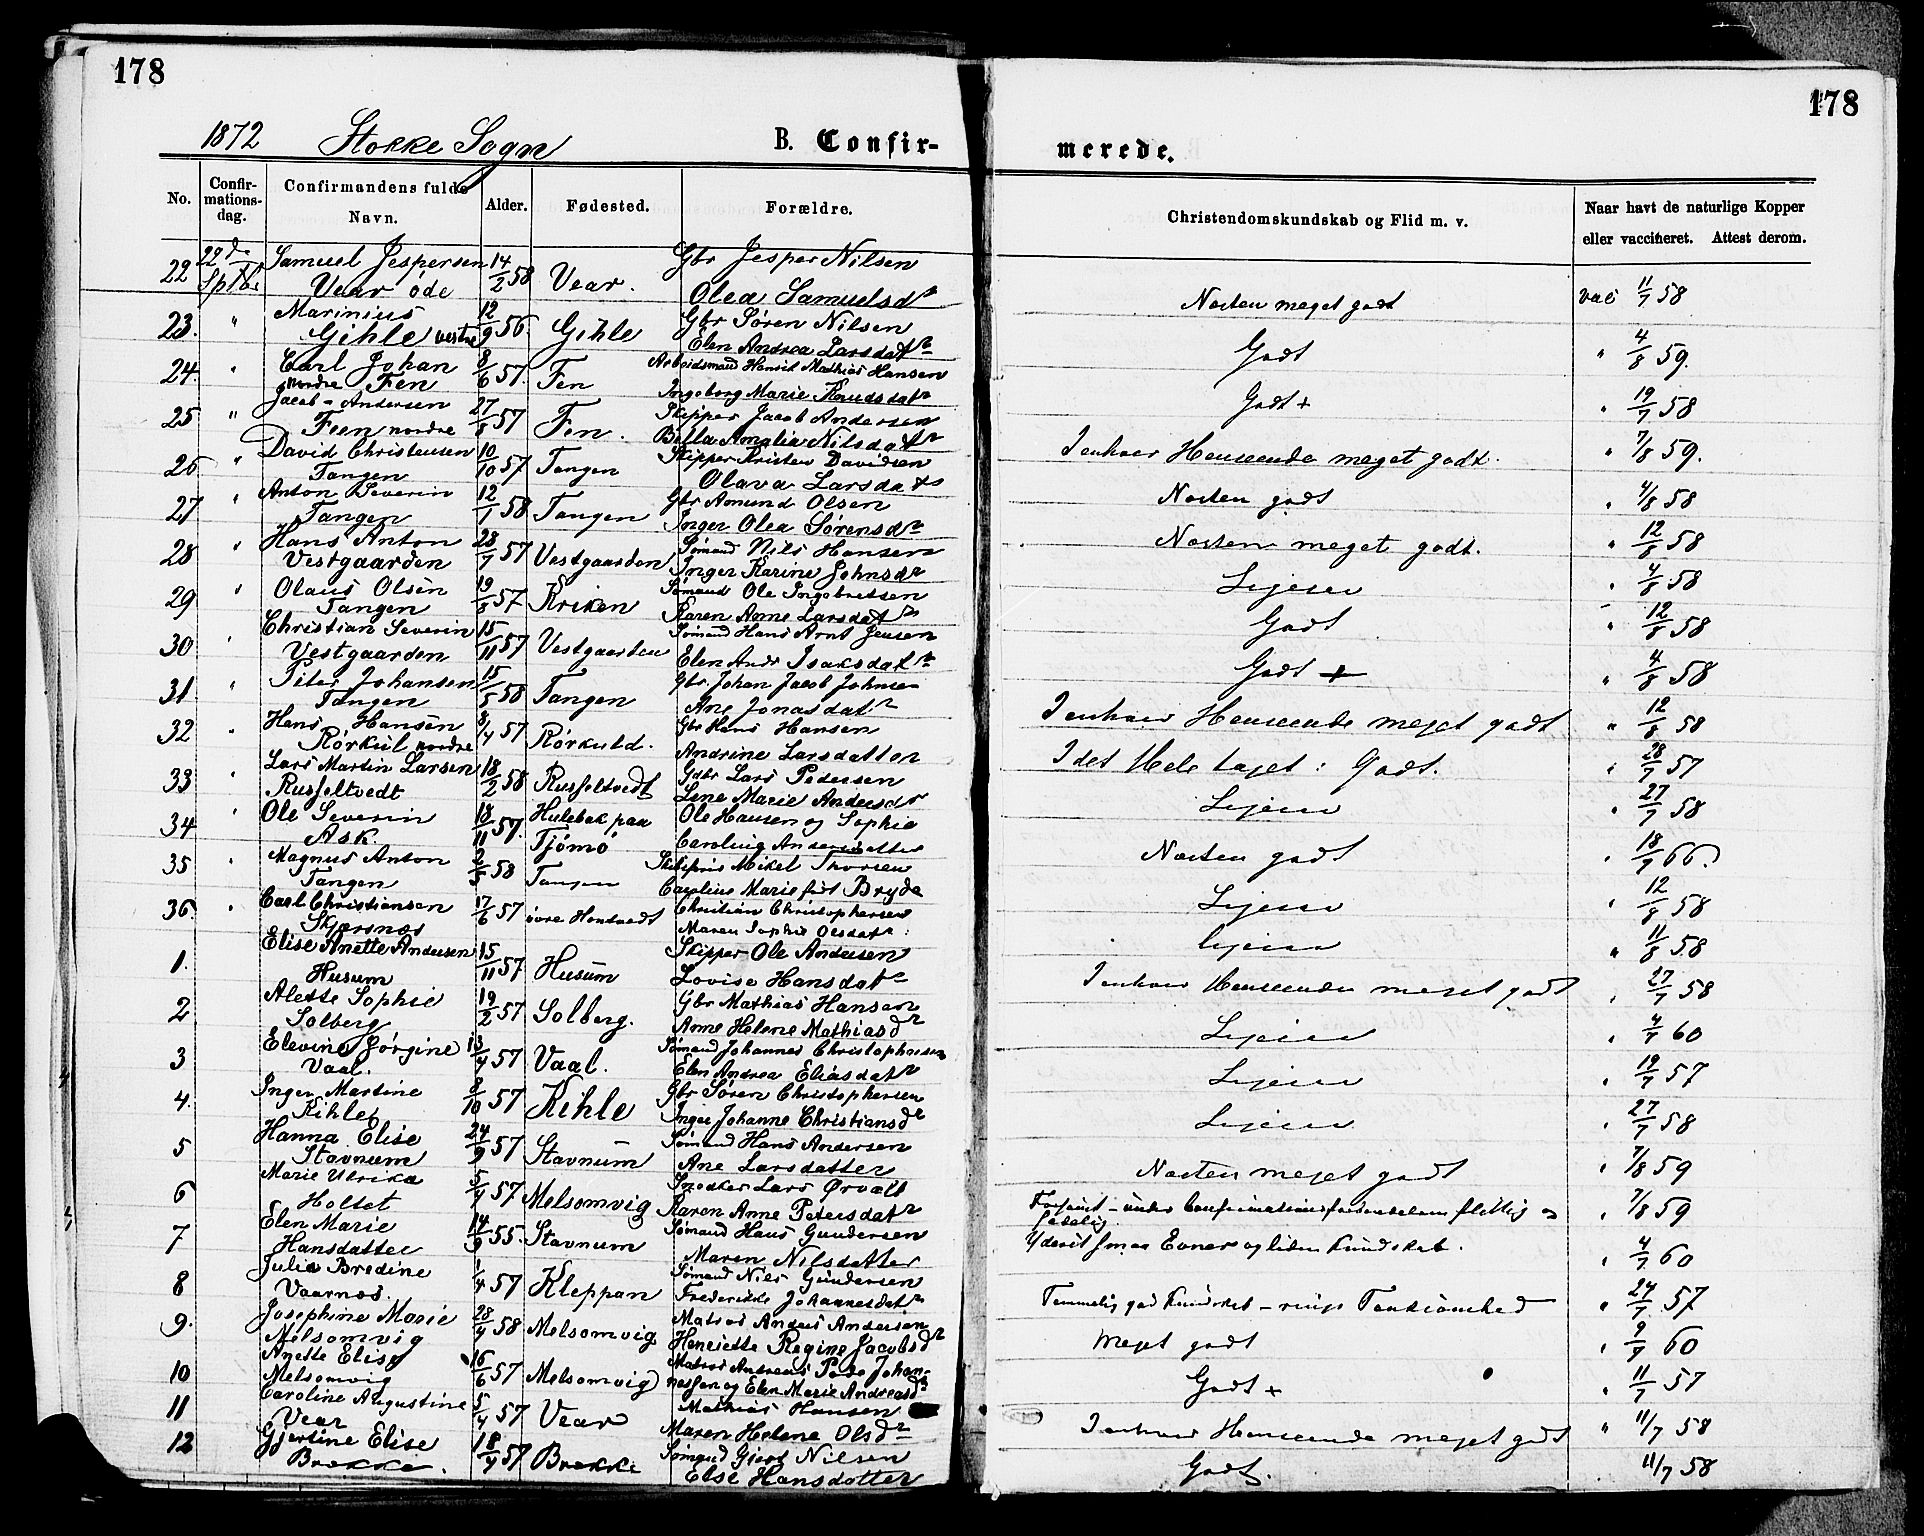 178
178
1872 Stokke Sogn B. Confir-
merede.
No. Confir-mations-dag. Confirmandens fulde Navn. Alder. Fødested. Forældre. Christendomskundskab og Flid m. v. Naar havt de naturlige Kopper eller vaccineret. Attest derom.
22 22de Samuel Jespersen 14/2 58 Vear. Gbr Jesper Nilsen
Sptbr Vear øde Olea Samuelsdtr Næsten meget godt vac 11/7 58
23. " Marinius 12/9 56 Gihle Gbr Søren Nilsen
Gihle vestre Elen Andrea Larsdatr Godt " 4/8 59.
24. " Carl Johan 8/6 57. Fen Arbeidsmand Mathias Hansen
nordre Fen Ingeborg Marie Knudsdatr Godt + " 19/7 58
25 " Jacob Andersen 27/8 57 Fen. Skipper Jacob Andersen
Feen nordre Amalia Nilsdatr I enhver Henseende meget godt. " 7/8 59.
26 " David Christensen 10/10 57 Tangen Skipper Kristen Davidsen
Tangen Olava Larsdatr Næsten godt " 4/8 58
27 " Anton Severin 12/1 58 Tangen Gbr Amund Olsen
Tangen Inger Olea Sørensdr Næsten meget godt. " 12/8 58
28 " Hans Anton 28/7 57 Vestgaarden Sømand Nils Hansen
Vestgaarden Inger Karine Johnsdr Ligesaa " 4/8 58
29 " Olaus Olsen 19/8 57 Kriken Sømand Ole Ingebretsen
Tangen Karen Anne Larsdatr Godt " 12/8 58
30 " Christian Severin 15/11 57 Vestgaarden Sømand Hans Arnt Jensen
Vestgaarden Elen Andr Isaksdatr Godt + " 4/8 58
31. " Peter Johansen 15/5 58 Tangen Gbr. Johan Jacob Johnsen
Tangen Ane Jonasdatr I enhver Henseende meget godt " 12/8 58
32 " Hans Hansen 8/4 57 Rørkuld. Gbr Hans Hansen
Rørkul nordre Andrine Larsdatter I det Hele taget: Godt. " 28/7 57
33 " Lars Martin Larsen 18/2 58 Russeltvedt Gdbr Lars Pedersen
Russeltvedt Lene Marie Andersdr Ligesaa " 27/7 58
34 " Ole Severin 18/11 57. Hulebak paa Ole Hansen og Sophie
Ask. Tjømø Caroline Næsten godt " 18/7 66
35 " Magnus Anton 2/3 58 Tangen Mikel Thorsen
Tangen Caroline Marie født Bryde Ligesaa " 12/8 58
36 " Carl Christiansen 17/6 57 øvre Christian Christophersen
Skjærsnæs Maren Sophie Olsdatr. ligesaa " 11/8 58
1. Elise Anette Andersen 15/11 57 Husum Skipper Ole Andersen
Husum Lovise Hansdatr I enhver Henseende meget godt " 27/7 58
2 Alette Sophie 19/2 57 Solberg. Gbr Mathias Hansen
Solberg Anne Helene Mathiasdr Ligesaa " 4/7 60
3 Elevine Jørgine 13/4 57 Vaal. Sømand Johannes Christophersen
Vaal. Elen Andrea Eliasdatr Ligesaa " 19/7 57
4. Inger Martine 8/10 57 Kihle Gbr Søren Christophersen
Kihle Inger Johanne Christiansdr Ligesaa " 27/7 58
5 Hanna Elise 24/9 57 Stavnum Sømand Hans Andersen
Stavnum Ane Larsdatter Næsten meget godt " 7/8 59
6 Marie Ulrika 5/4 57 Melsomvig Snedker Lars Ørvalt
Holtet Karen Anne Petersdatr Forsømt - under Confirmationsforberedelsen flittig og sædelig " 7/8 59
7 Elen Marie 14/9 55. Stavnum Sømand Hans Gundersen
Hansdatter Maren Nilsdatter Yderst smaa Evner og liden Kundskab. " 4/7 60
8 Julia Bredine 1/4 57 Kleppan Sømand Nils Gundersen
Vaarnæs. Frederikke Johannesdatr Temmelig god Kundskab - ringe Tænksomhed " 24/7 57
9. Josephine Marie 28/4 58 Melsomvig Matros Anders Andersen
Melsomvig Henriette Regine Jacobsdr Meget godt " 9/7 60
10 Anette Elise 16/6 57 Melsomvig Matros Andreas Johan-
Melsomvig nessen og Elen Marie Andreasdr Godt + " 11/7 57
11 Caroline Augustine 5/4 57 Vear Mathias Hansen
Vear Maren Helene Olsdr I enhver Henseende meget godt " 11/7 58
12 Gjertine Elise 18/4 57 Brekke Sømand Gjert Nilsen
Brekke. Else Hansdatter Godt. 11/7 58